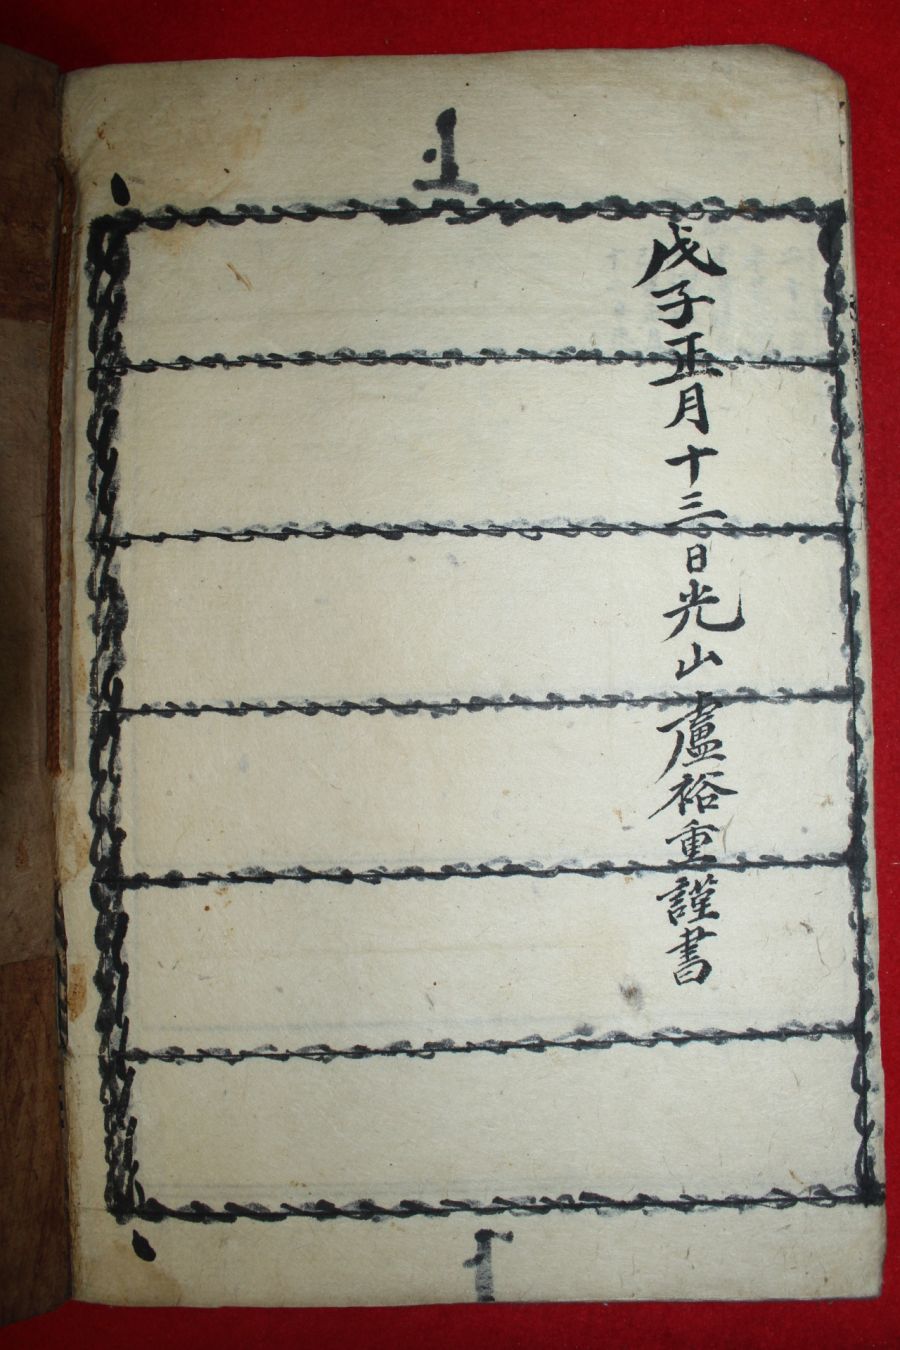 戊子正月十三日光山盧裕重謹書